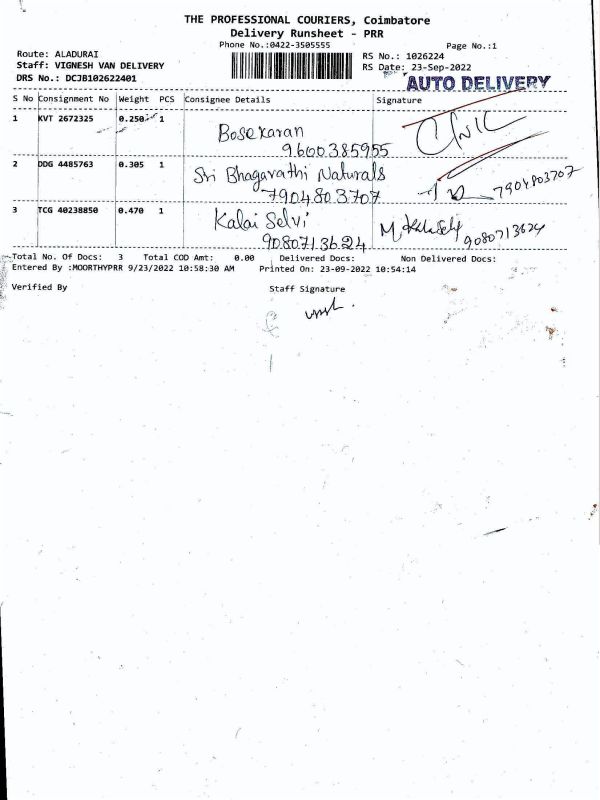 THE PROFESSIONAL COURIERS, Coimbatore
Delivery Runsheet - PRR
Phone No.:0422-3505555
Page No.:1
Route: ALADURAI
RS No.: 1026224
Staff: VIGNESH VAN DELIVERY
RS Date: 23-Sep-2022
DRS No.: DCJB102622401
AUTO DELIVERY
S No Consignment No Weight PCS Consignee Details Signature
1 KVT 2672325 0.250 1 Bosekaran
9600385955
2 DDG 4485763 0.305 1 Sri Bhagavathi Naturals
7904803707 7904803707
3 TCG 40238850 0.470 1 Kalai Selvi
9080713624 9080713624
Total No. Of Docs: 3 Total COD Amt: 0.00 Delivered Docs: Non Delivered Docs:
Entered By :MOORTHYPRR 9/23/2022 10:58:30 AM Printed On: 23-09-2022 10:54:14
Verified By Staff Signature